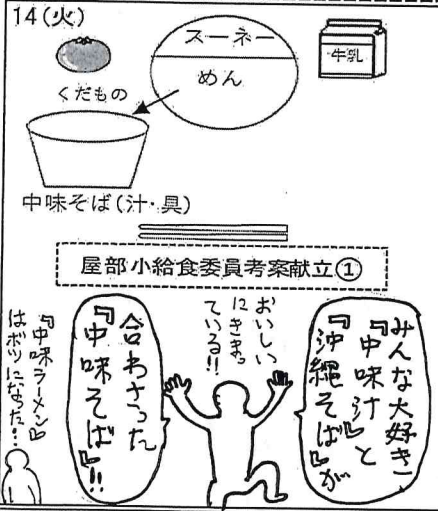 14(火)
スーネー
めん
牛乳
くだもの
中味そば(汁・具)
屋部小給食委員考案献立①
みんな大好き
『中味汁』と
『沖縄そば』が
おいしい
にきまっ
ている!!
合わさった
『中味そば』!!
『中味ラーメン』
はボツになった…